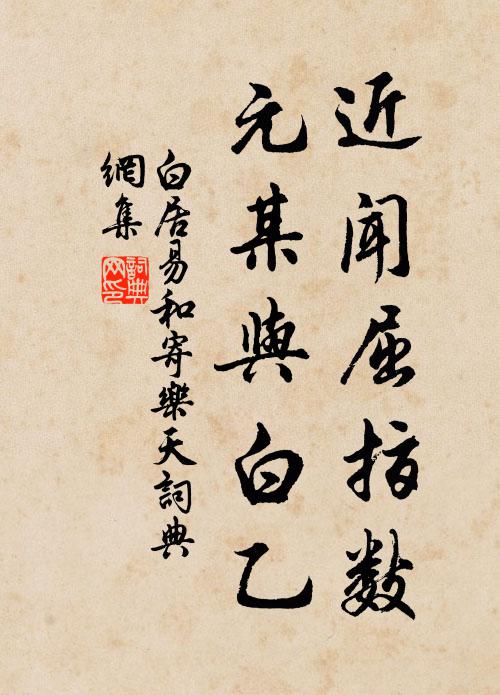 近聞屈指数
元某與白乙
白居易和寄樂天詞典
網集
詞典
网印